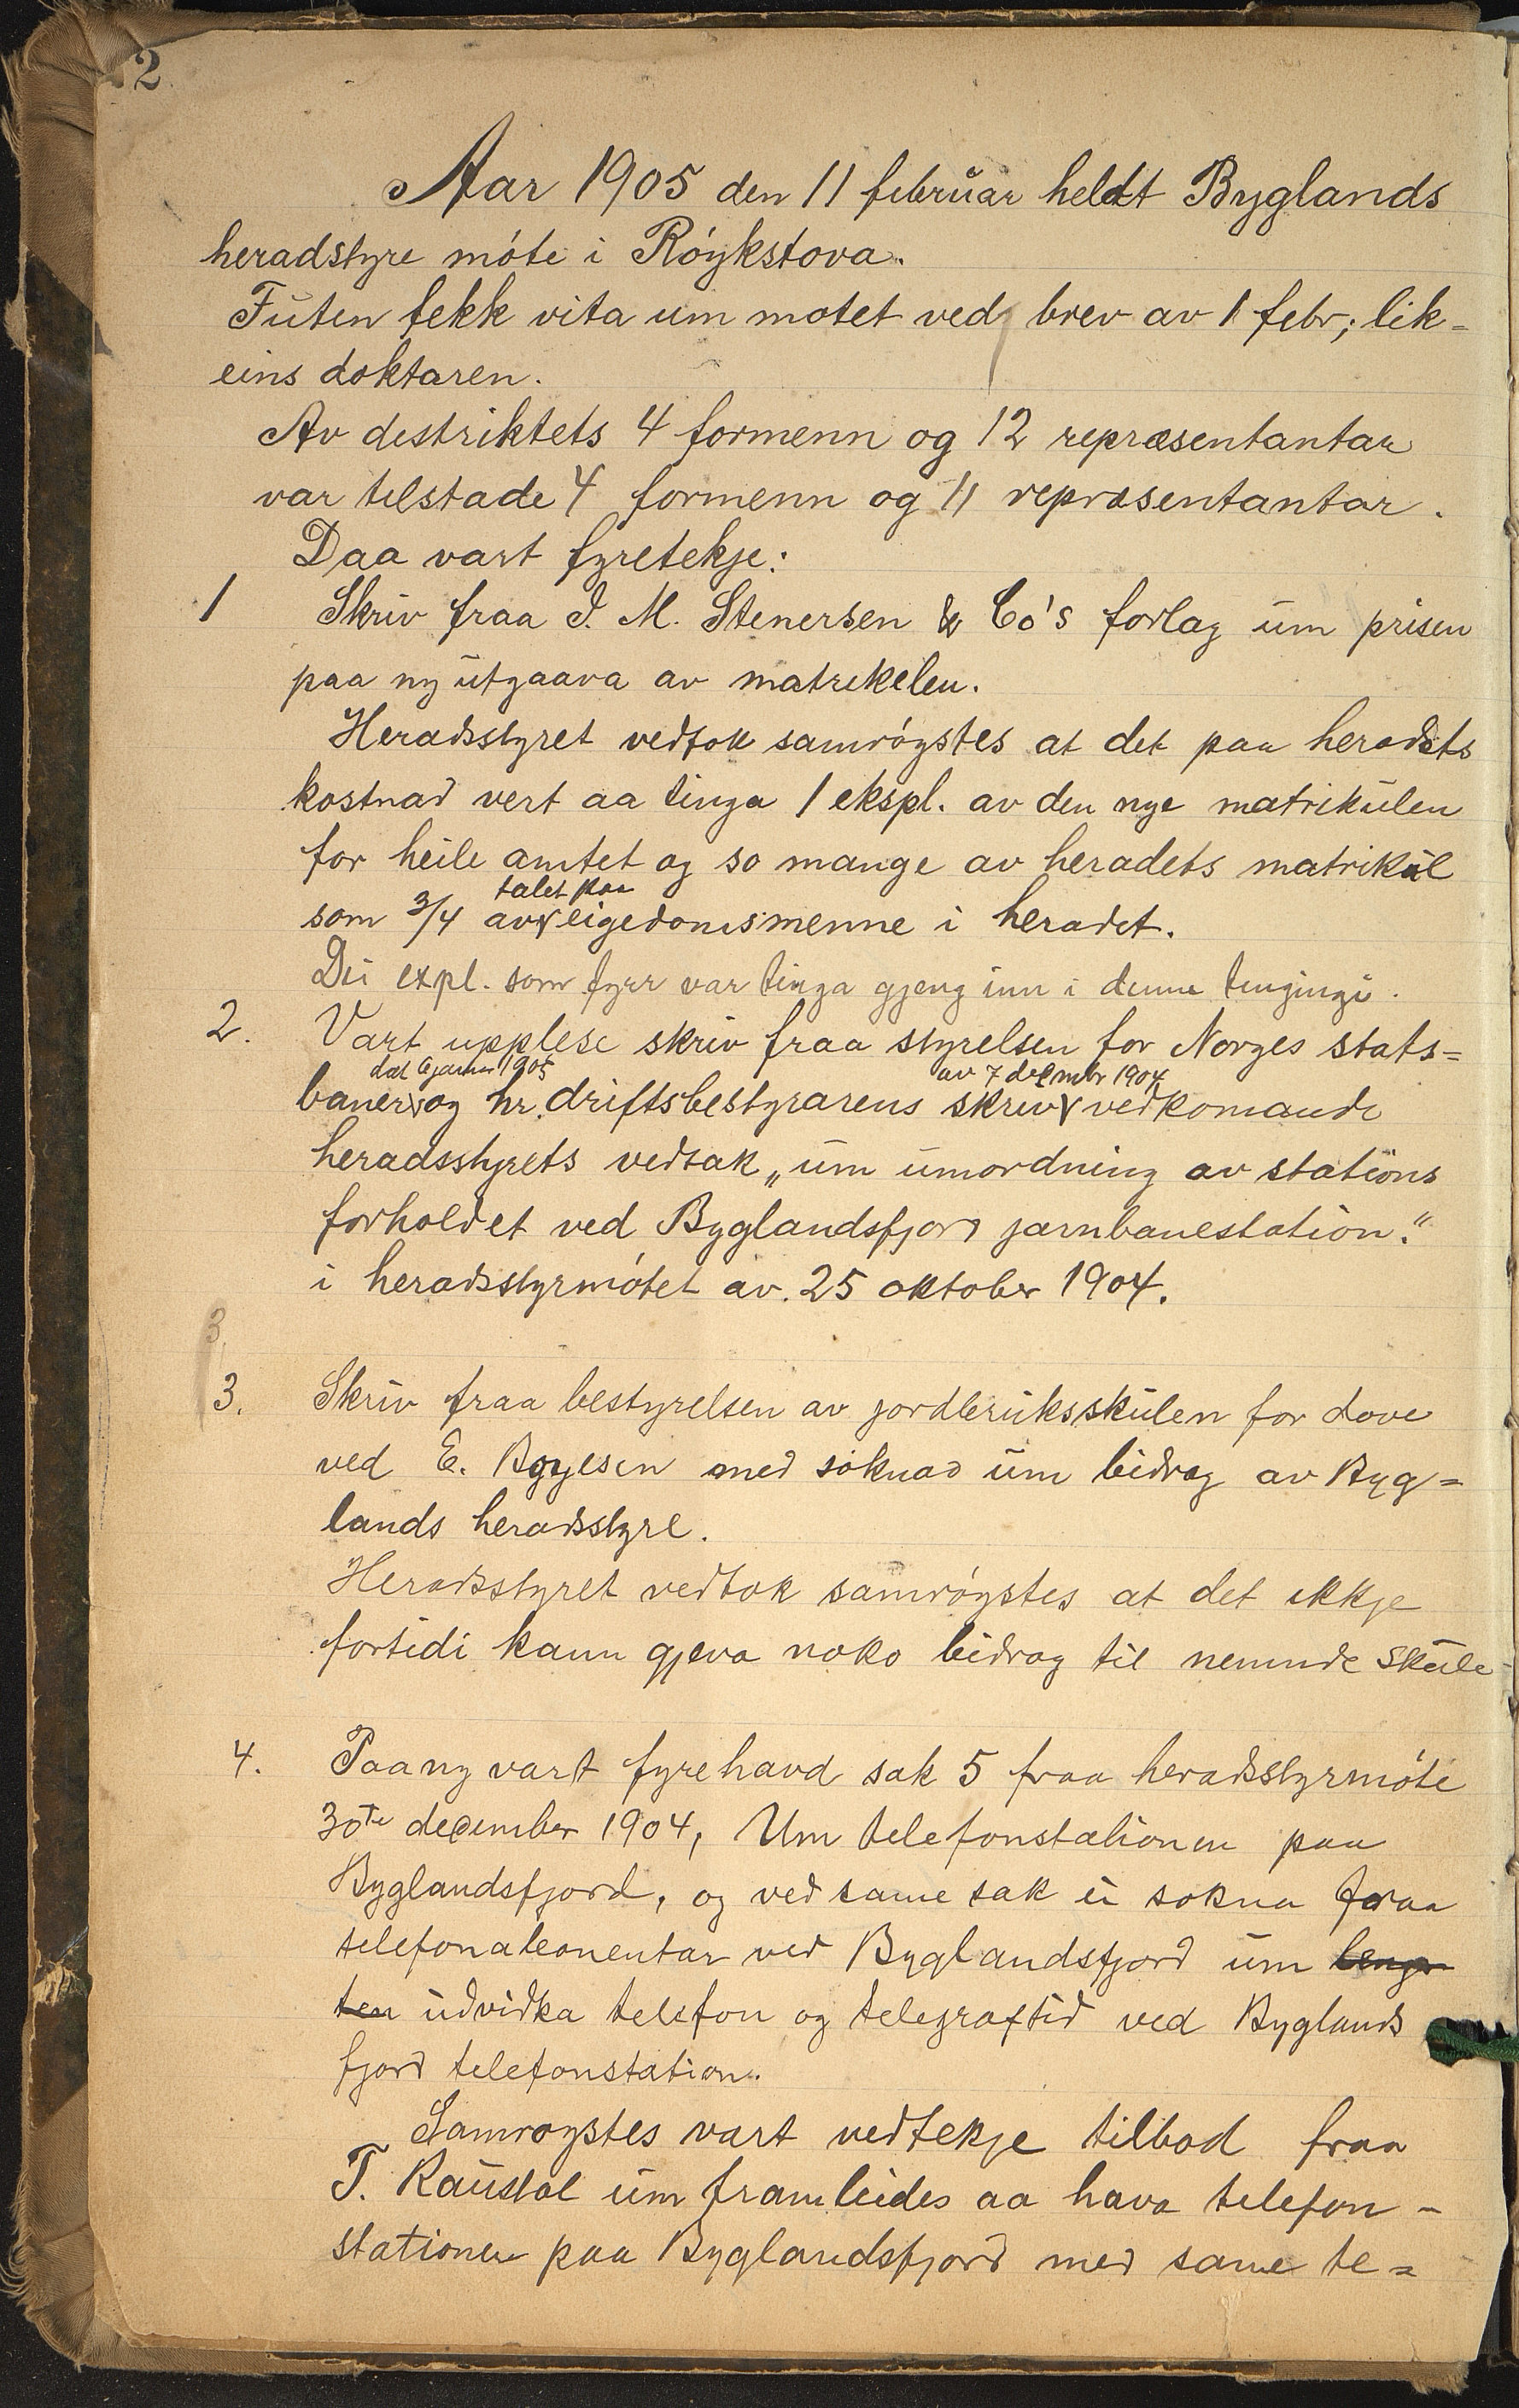 2
Aar 1905 den 11 februar heldt Byglands
heradstyre móte i Róykstova.
Futen fekk vita um motet ved brev av 1 febr; lik-
eins doktaren.
Av destriktets 4 formenn og 12 repræsentantar
var telstade 4 formenn og 11 repræsentantar.
Daa vart fyretekje:
1 Skriv fraa I. M. Stenersen & Co's forlag um prisen
paa ny utgaava av matrekelen.
Heradsstyret vedtok samróystes at det paa heradets
kostnad vert aa tinga 1 ekspl. av den nye matrikulen
for heile amtet og so mange av heradets matrikul
talet paa
som 3/4 av eigedomsmenne i heradet.
Dei expl. som fyrr var tinga gjeng inn i denne tingingi.
2. Vart upplese skriv fraa styrelsen for Norges stats=
dat 6 januar 1905 av 7 decmbr 1904
baner og hr. driftsbestyrarens skriv vedkomande
heradsstyrets vedtak „um umordning av stations
forholdet ved Byglandsfjord jarnbanestation."
i heradsstyrmótet av. 25 oktober 1904.
3.
3. Skriv fraa bestyrelsen av jordbruksskulen for dove
ved E. med soknad um bidrag av Byg=
lands heradsstyre.
Heradsstyret vedtok samróystes at det ikkje
fortidi kann gjeva noko bidrag til nemnde skule
4. Paany vart fyrehavd sak 5 fraa heradsstyrmóte
30te december 1904, Um telefonstationen paa
Byglandsfjord, og ved same sak ei sokna fraa
telefonabonentar ved Byglandsfjord um lengr
ten udvidka telefon og telegraftid ved Byglands
fjord telefonstation.
Samroystes vart vedtekje tilbod fraa
T. Raustøl um framleides aa hava telefon-
stationen paa Byglandsfjord med same te=